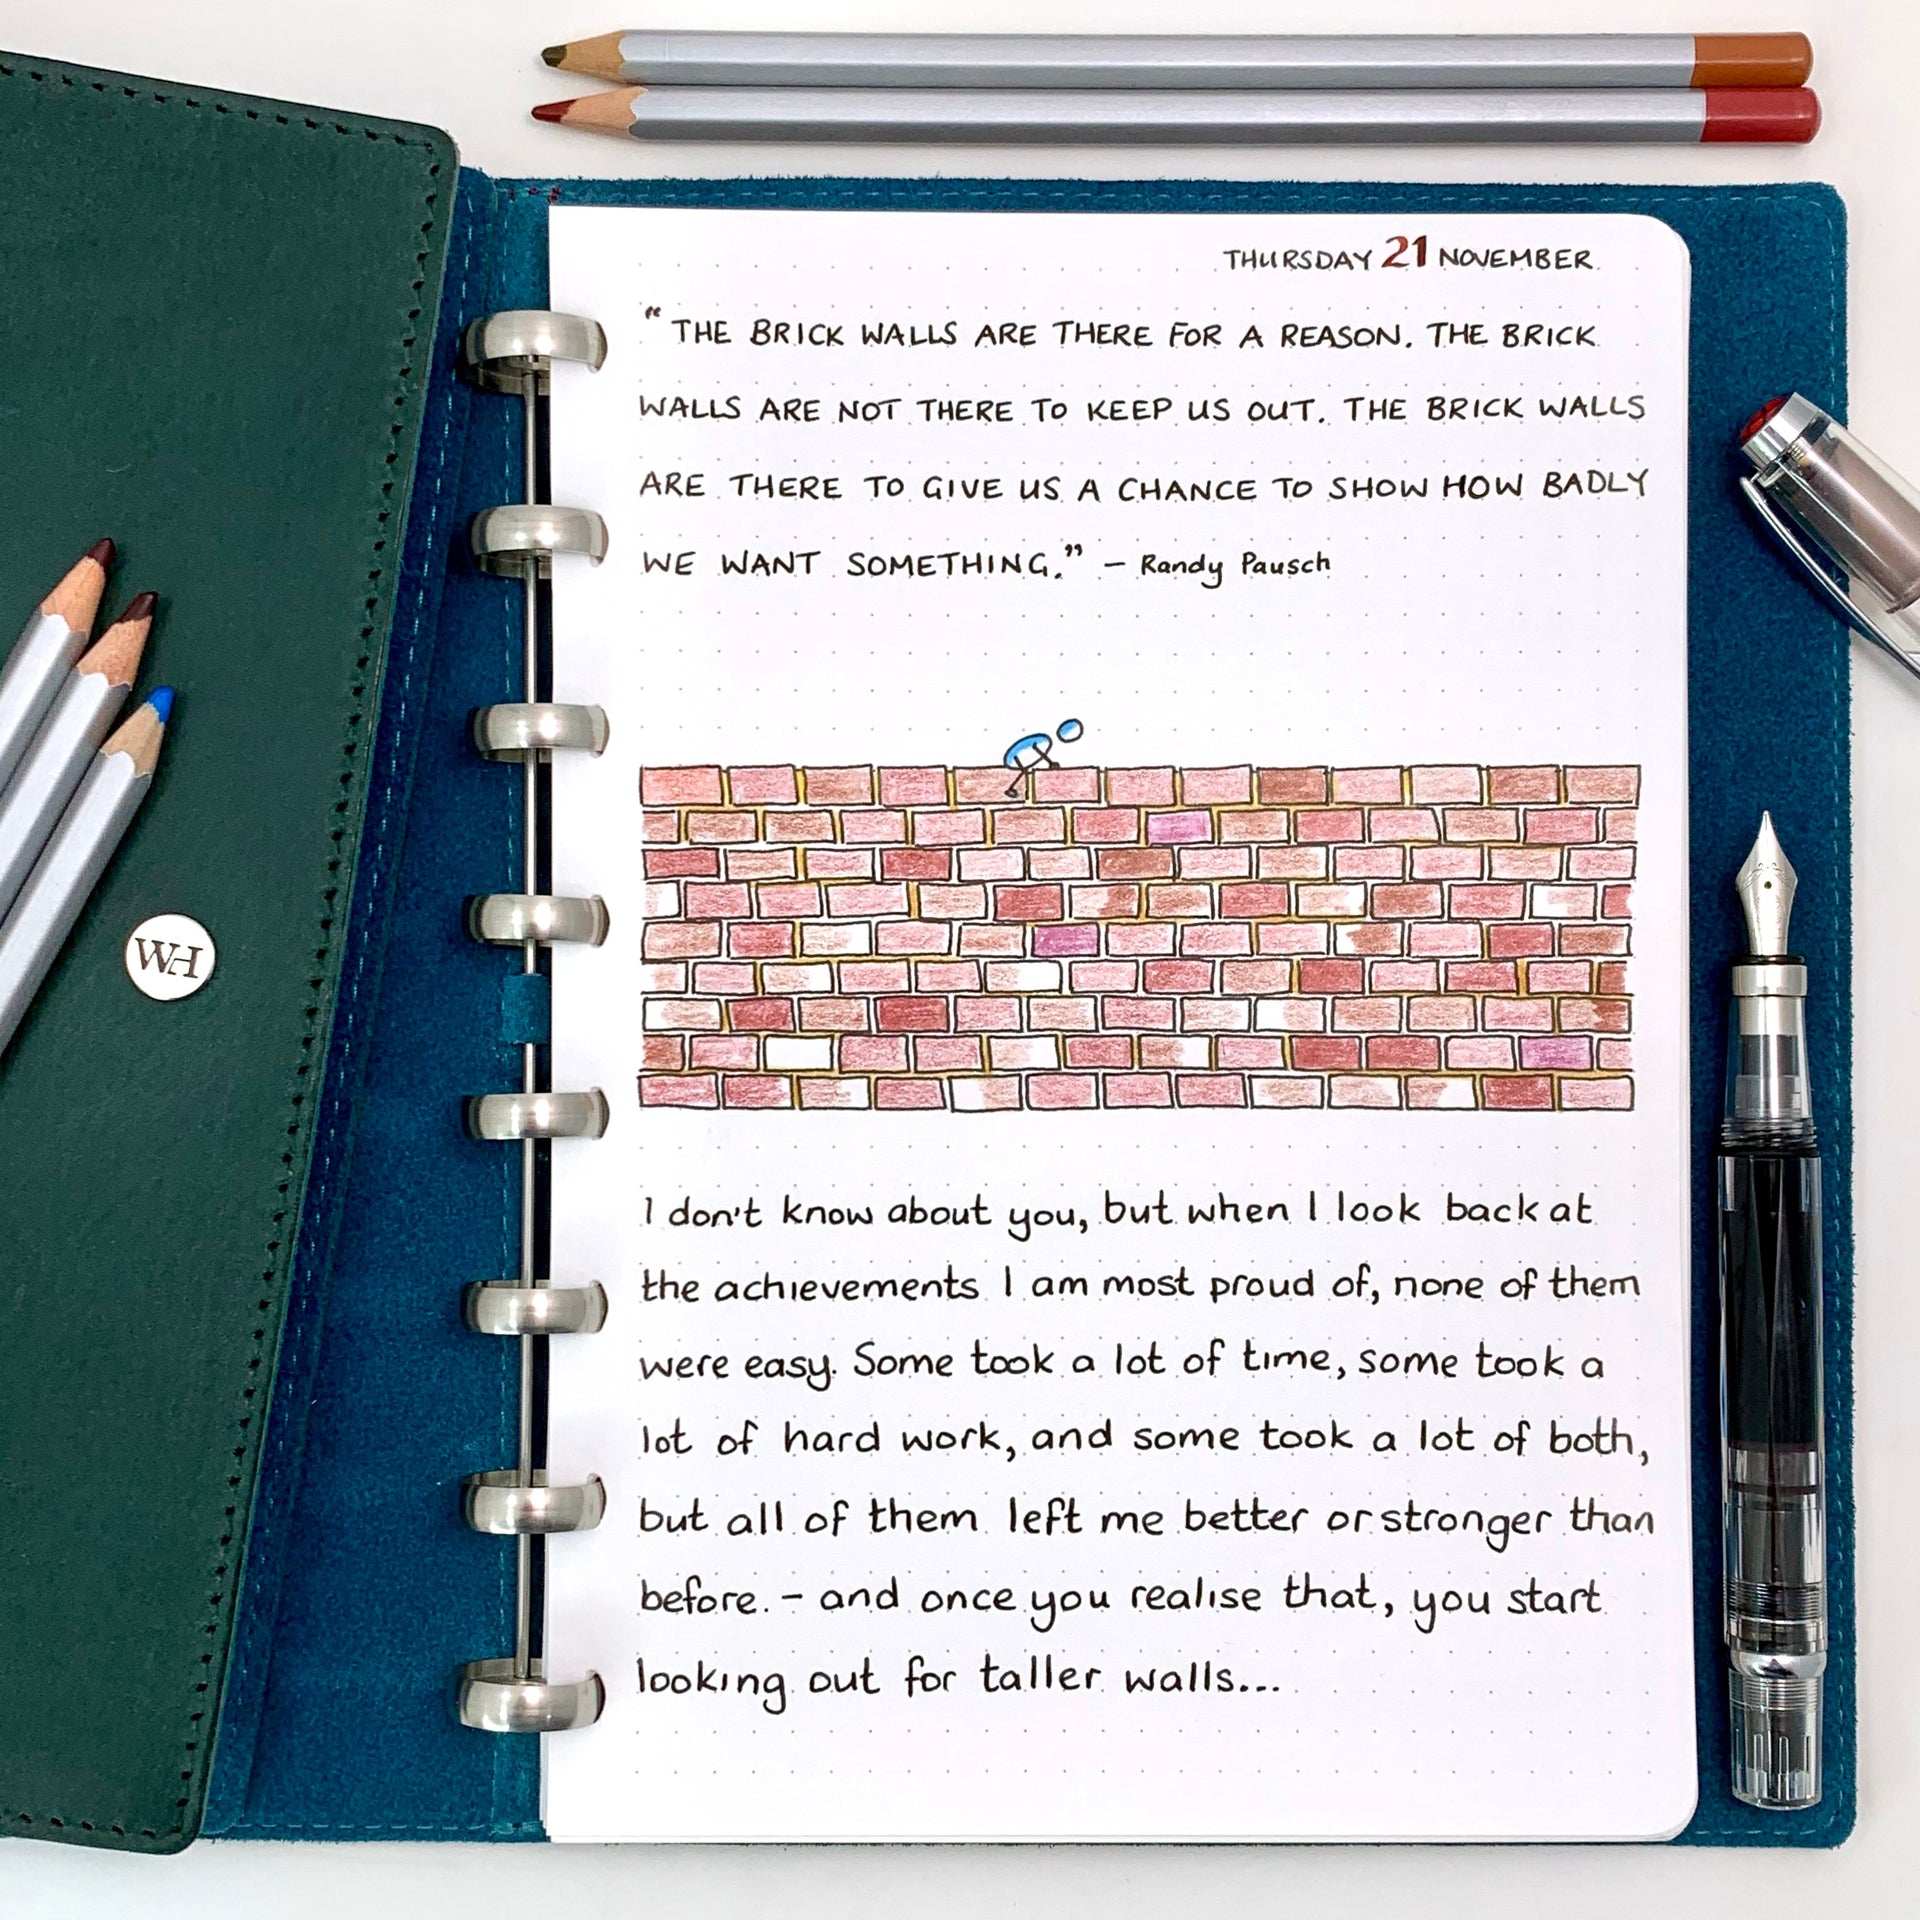 THURSDAY 21 NOVEMBER
"THE BRICK WALLS ARE THERE FOR A REASON. THE BRICK
WALLS ARE NOT THERE TO KEEP US OUT. THE BRICK WALLS
ARE THERE TO GIVE US A CHANCE TO SHOW HOW BADLY
WE WANT SOMETHING." – Randy Pausch
I don't know about you, but when I look back at
the achievements I am most proud of, none of them
were easy. Some took a lot of time, some took a
lot of hard work, and some took a lot of both,
but all of them left me better or stronger than
before. – and once you realise that, you start
looking out for taller walls...
WH